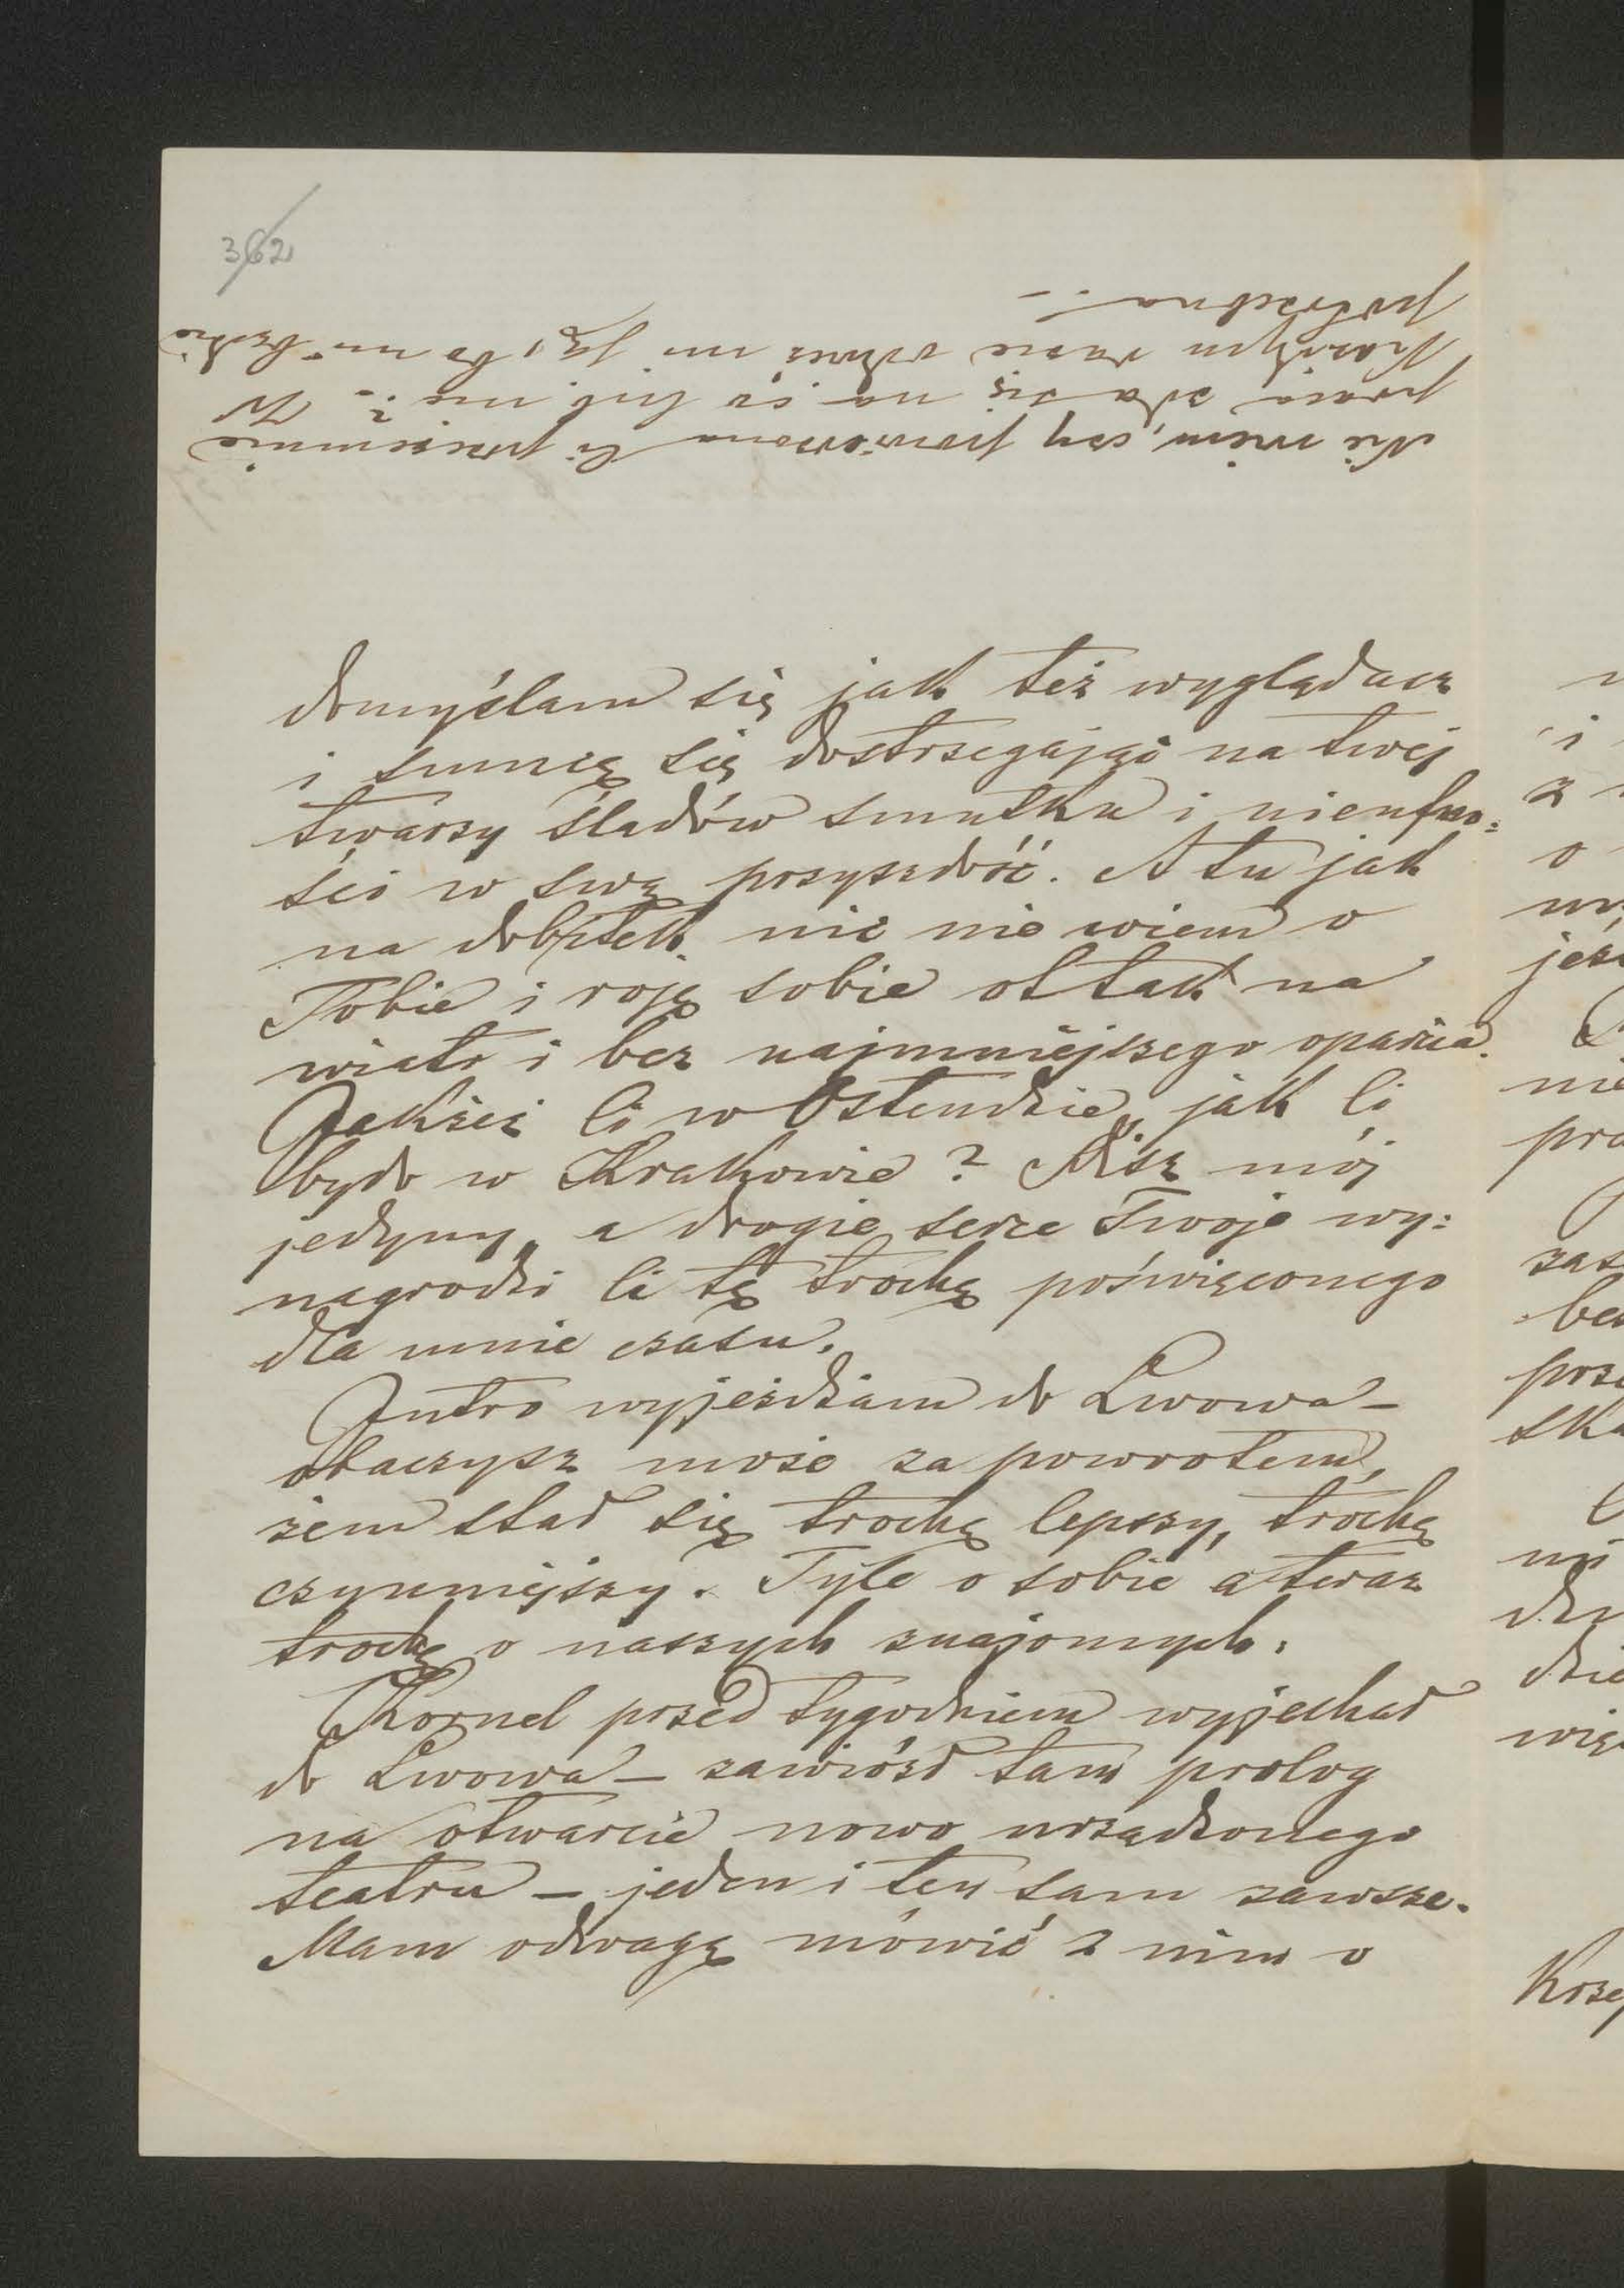 362
Nie wiem, czy powierzona Ci przezemnie
praca zda się na co lub nie? W
Każdym razie odwieź mi ją, bo mi będzie
potrzebna.–
domyślam się jak też wyglądasz
i smucę się dostrzegając na twej
twarzy śladów smutku i nieufno=
ści w swą przyszłość. A tu jak
na dobitek nic nie wiem o
Tobie i roję sobie ot tak na
wiatr i bez najmniejszego oparcia.
Jakżeż Ci w Ostendzie, jak Ci
było w Krakowie? Pisz mój
jedyny, a drogie serce Twoje wy=
nagrodzi Ci tę trochę poświęconego
dla mnie czasu.
Jutro wyjeżdżam do Lwowa –
obaczysz może za powrotem,
żem stał się trochę lepszy, trochę
czynniejszy. Tyle o sobie a teraz
trochę o naszych znajomych.
Kornel przed tygodniem wyjechał
do Lwowa – zawiózł tam prolog
na otwarcie nowo urządzonego
teatru – jeden i ten sam zawsze.
Mam odwagę mówić z nim o